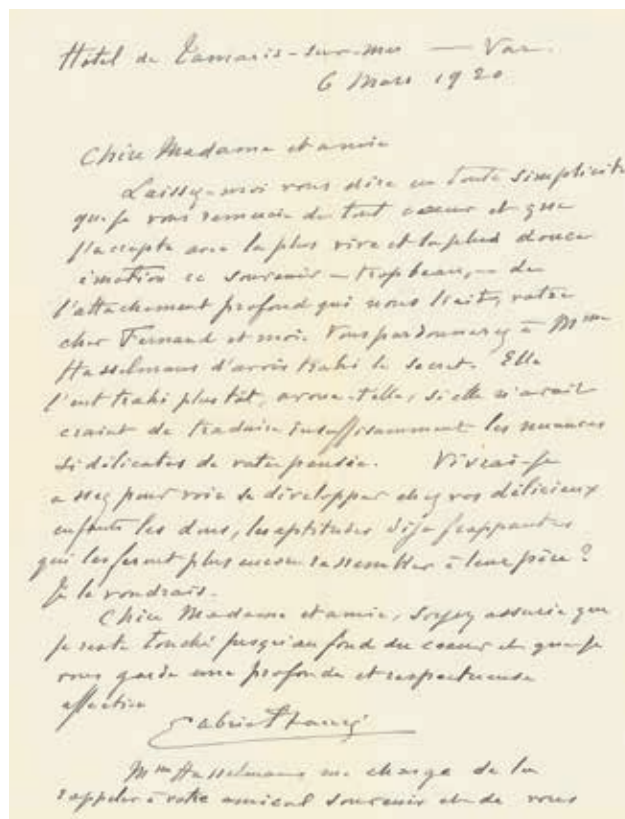 Hôtel de Tamaris-sur-mer — Var.
6 Mars 1920
Chère Madame et amie
Laissez-moi vous dire en toute simplicité
que je vous remercie de tout coeur et que
j'accepte avec la plus vive et la plus douce
émotion ce souvenir — trop beau, — de
l'attachement profond qui nous liait, votre
cher Fernand et moi. Vous pardonnerez à Mme
Hasselmans d'avoir trahi le secret. Elle
l'eut trahi plus tôt, avoue-t-elle, si elle n'avait
craint de traduire insuffisamment les nuances
si délicates de votre pensée. Vivrai-je
assez pour voir se développer chez vos délicieux
enfants les dons, les aptitudes déjà frappantes
qui les feront plus encore ressembler à leur père ?
Je le voudrais.
Chère Madame et amie, soyez assurée que
je reste touché jusqu'au fond du coeur et que je
vous garde une profonde et respectueuse
affection
Gabriel Fauré
Mme Hasselmans me charge de la
rappeler à votre amical souvenir et de vous